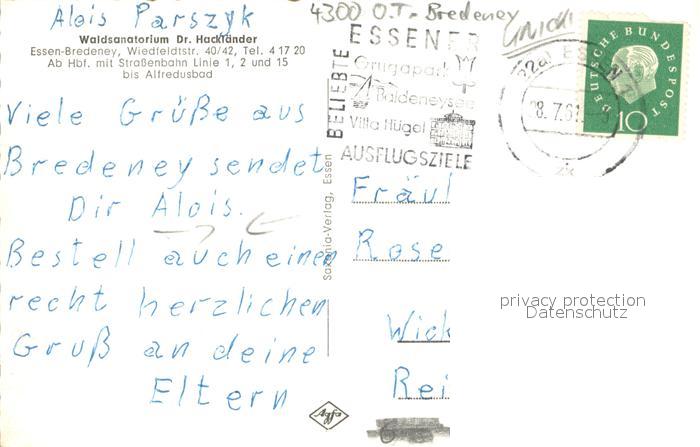 Alois Parszyk
Waldsanatorium Dr. Hackländer
Essen-Bredeney, Wiedfeldtstr. 40/42, Tel. 4 17 20
Ab Hbf. mit Straßenbahn Linie 1, 2 und 15
bis Alfredusbad
Viele Grüße aus
Bredeney sendet
Dir Alois.
Bestell auch einen
recht herzlichen
Gruß an deine
Eltern
Saxonia-Verlag, Essen
Agfa
4300 O.T. Bredeney
BELIEBTE
ESSENER
Grugapark
Baldeneysee
Villa Hügel
AUSFLUGSZIELE
ESSEN
28.7.61
DEUTSCHE BUNDESPOST
10
Fräul
Rose
Wick
Rei
privacy protection
Datenschutz